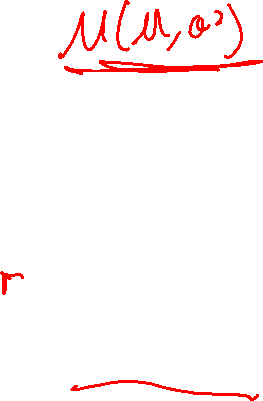 N(μ, σ²)
r